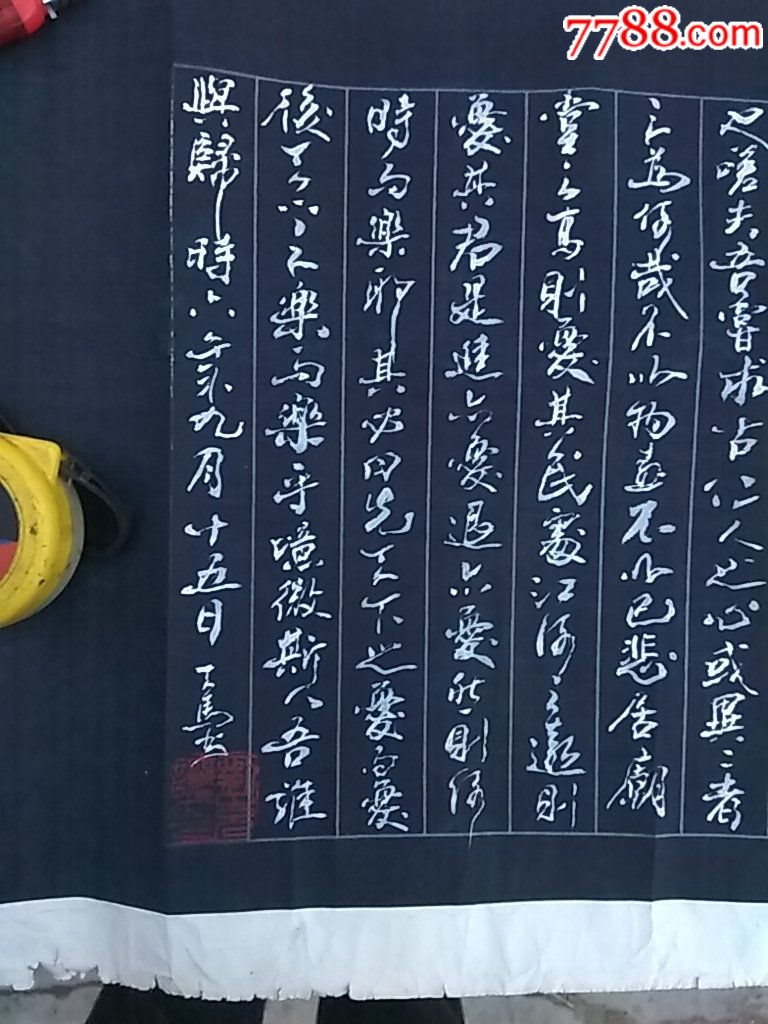 7788.com
也嗟夫吾嘗求古仁人之心或異二者
之為何哉不以物喜不以己悲居廟
堂之高則憂其民處江湖之遠則
憂其君是進亦憂退亦憂然則何
時而樂耶其必曰先天下之憂而憂
後天下之樂而樂乎噫微斯人吾誰
與歸時六年九月十五日